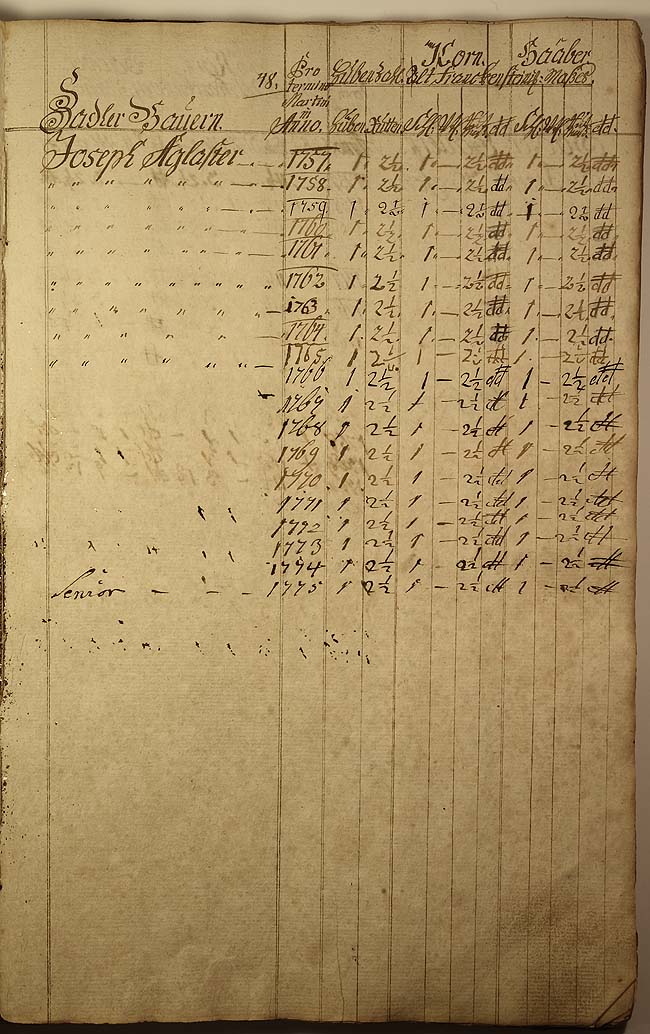 48. Pro Hübenzahl. Korn. Haaber
termino Alt Franckenstein: Maßes.
Martini
Sadler Bauern. Anno. Hüben Ruten dd dd.
Joseph Aglaster 1757. 1. 2½. 1. – 2½ dd. 1. – 2½ dd.
" " " " " " 1758. 1. 2½. 1. – 2½ dd. 1. – 2½ dd.
" " " " " " 1759 1 2½ 1 – 2½ dd 1 – 2½ dd
" " " " " " 1760 1. 2½ 1. – 2½ dd 1. – 2½ dd
" " " " " " 1761. 1. 2½. 1. – 2½ dd 1. – 2½ dd
" " " " " " 1762 1. 2½ 1. – 2½ dd 1. – 2½ dd
" " " " " " 1763 1. 2½. 1. – 2½ dd 1. – 2½ dd
" " " " " " 1764. 1. 2½. 1. – 2½ dd 1. – 2½ dd.
" " " " " " 1765. 1 2½ 1 – 2½ dd 1. – 2½ dd
1766 1 2½ 1 – 2½ dd 1 – 2½ dd
1767 1 2½ 1 – 2½ dd 1 – 2½ dd
1768 1 2½ 1 – 2½ dd 1 – 2½ dd
1769 1 2½ 1 – 2½ dd 1 – 2½ dd
1770 1 2½ 1 – 2½ dd 1 – 2½ dd
1771 1 2½ 1 – 2½ dd 1 – 2½ dd
1772 1 2½ 1 – 2½ dd 1 – 2½ dd
1773 1 2½ 1 – 2½ dd 1 – 2½ dd
1774 1 2½ 1 – 2½ dd 1 – 2½ dd
Senior – – – 1775 1 2½ 1 – 2½ dd 1 – 2½ dd